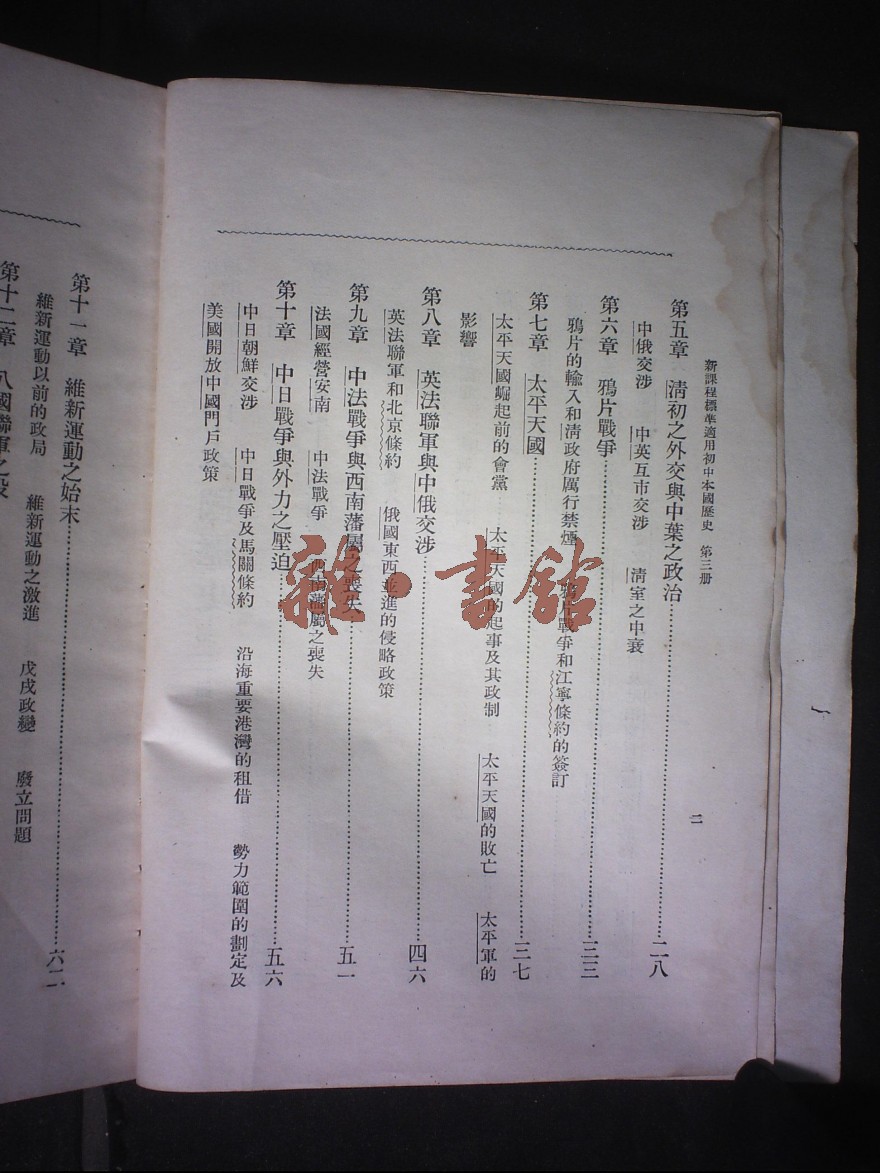 新課程標準適用初中本國歷史 第三册
二
第五章 淸初之外交與中葉之政治……二八
中俄交涉 中英互市交涉 淸室之中衰
第六章 鴉片戰爭……三三
鴉片的輸入和淸政府厲行禁煙 鴉片戰爭和江寧條約的簽訂
第七章 太平天國……三七
太平天國崛起前的會黨 太平天國的起事及其政制 太平天國的敗亡 太平軍的
影響
第八章 英法聯軍與中俄交涉……四六
英法聯軍和北京條約 俄國東西並進的侵略政策
第九章 中法戰爭與西南藩屬之喪失……五一
法國經營安南 中法戰爭 西南藩屬之喪失
第十章 中日戰爭與外力之壓迫……五六
中日朝鮮交涉 中日戰爭及馬關條約 沿海重要港灣的租借 勢力範圍的劃定及
美國開放中國門戶政策
第十一章 維新運動之始末……六二
維新運動以前的政局 維新運動之激進 戊戌政變 廢立問題
第十二章 八國聯軍之役
雜·書館